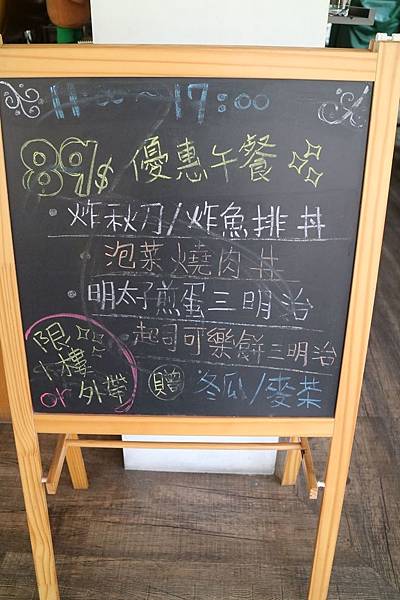 11:00~17:00
89$ 優惠午餐
• 炸秋刀/炸魚排 丼
• 泡菜燒肉丼
• 明太子煎蛋三明治
• 起司可樂餅三明治
限
1樓
or 外帶
贈 冬瓜/麥茶